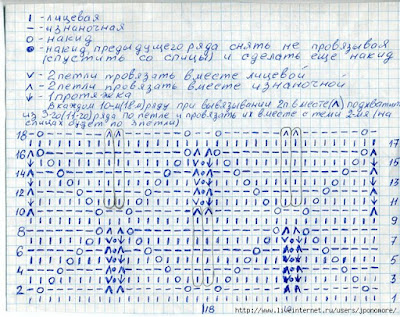 I - лицевая
- - изнаночная
о - накид
• - накид предыдущего ряда снять не провязывая
(спустить со спицы) и сделать ещё накид
v - 2 петли провязать вместе лицевой
ʌ - 2 петли провязать вместе изнаночной
↓ - протяжка
В каждом 10-м(18-м) ряду при вывязывании 2п. вместе (ʌ) подхватить
из 3-го(11-го) ряда по петле и провязать их вместе с теми 2-мя (на
спицах будет по 3 петли)
18
17
16
15
14
13
12
11
10
9
8
7
6
5
4
3
2
1
1/8
http://www.liveinternet.ru/users/jponomore/